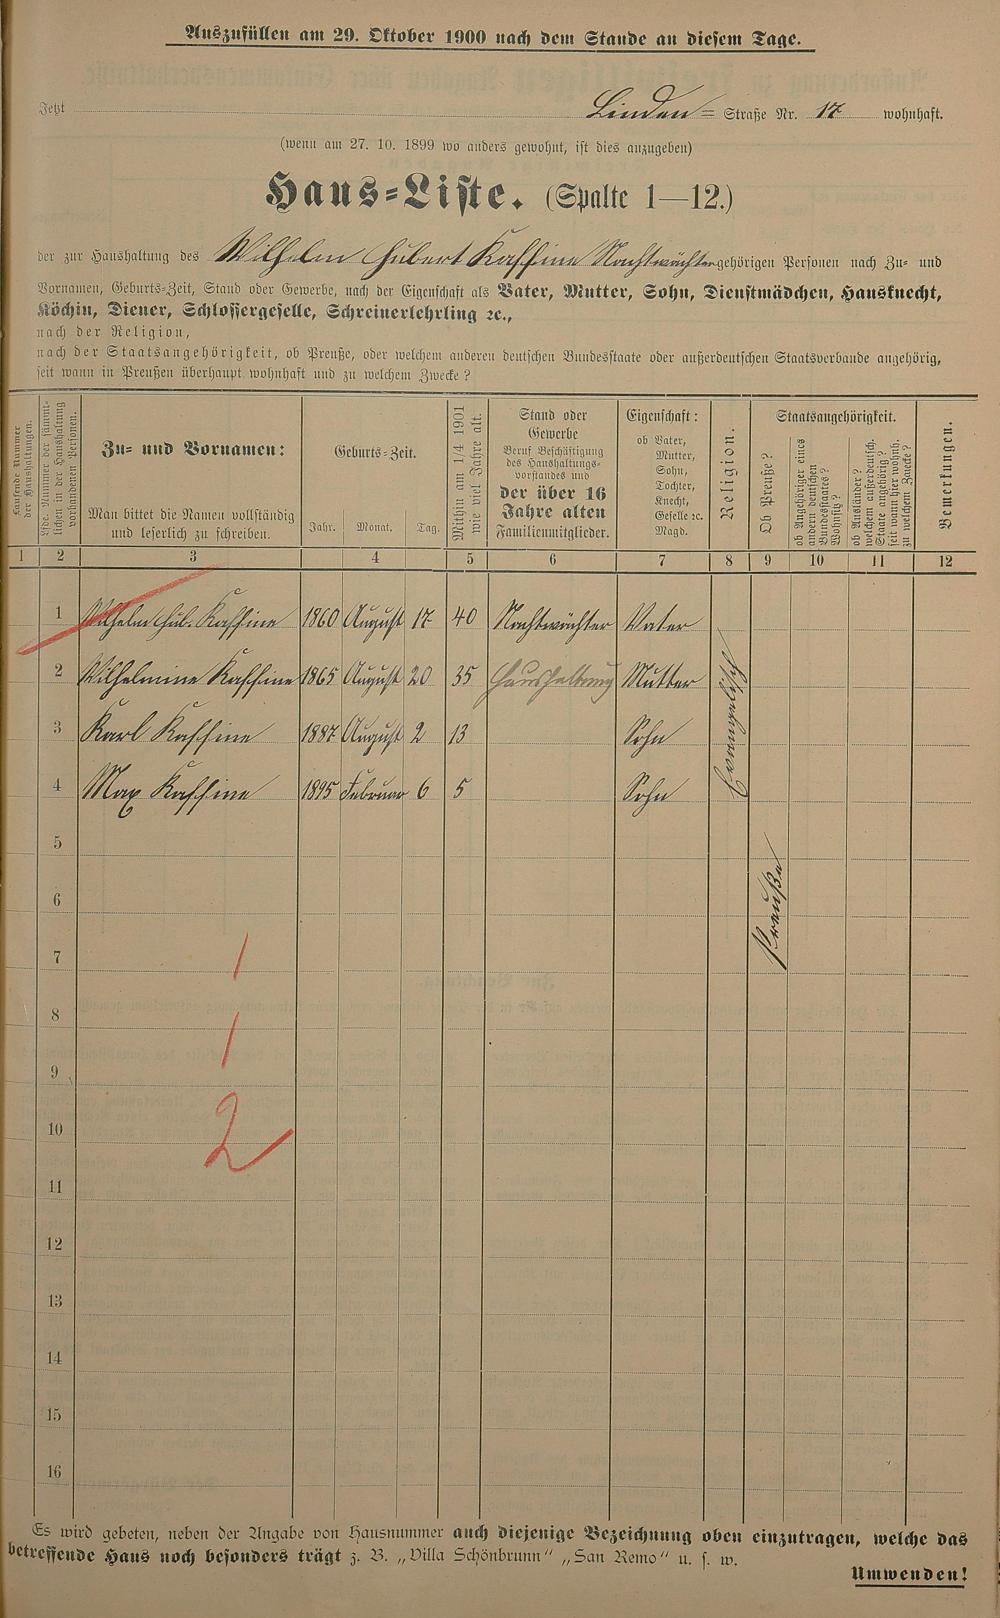 Auszufüllen am 29. Oktober 1900 nach dem Stande an diesem Tage.
Jetzt Linden= Straße Nr. 17 wohnhaft.
(wenn am 27. 10. 1899 wo anders gewohnt, ist dies anzugeben)
Haus=Liste. (Spalte 1—12.)
der zur Haushaltung des Wilhelm Hubert Kassine Nachtwächter gehörigen Personen nach Zu= und
Vornamen, Geburts=Zeit, Stand oder Gewerbe, nach der Eigenschaft als Vater, Mutter, Sohn, Dienstmädchen, Hausknecht,
Köchin, Diener, Schlossergeselle, Schreinerlehrling ꝛc.,
nach der Religion,
nach der Staatsangehörigkeit, ob Preuße, oder welchem anderen deutschen Bundesstaate oder außerdeutschen Staatsverbande angehörig,
seit wann in Preußen überhaupt wohnhaft und zu welchem Zwecke?
Laufende Nummer der Haushaltungen.
Lfde. Nummer der sämmtlichen in der Haushaltung vorhandenen Personen.
Zu= und Vornamen:
Man bittet die Namen vollständig
und leserlich zu schreiben.
Geburts=Zeit.
Jahr. Monat. Tag.
Mithin am 1/4 1901
wie viel Jahre alt.
Stand oder
Gewerbe
Beruf Beschäftigung
des Haushaltungs-
vorstandes und
der über 16
Jahre alten
Familienmitglieder.
Eigenschaft:
ob Vater,
Mutter,
Sohn,
Tochter,
Knecht,
Geselle ꝛc.
Magd.
Religion.
Staatsangehörigkeit.
Ob Preuße?
ob Angehöriger eines
andern deutschen
Bundesstaates?
Wohnsitz?
ob Ausländer?
welchem außerdeutsch.
Staate angehörig?
seit wann hier wohnh.
zu welchem Zwecke?
Bemerkungen.
1 2 3 4 5 6 7 8 9 10 11 12
1 Wilhelm Hub. Kassine 1860 August 17 40 Nachtwächter Vater
2 Wilhelmine Kassine 1865 August 20 35 Haushaltung Mutter
3 Karl Kassine 1887 August 2 13 Sohn
4 Max Kassine 1895 Februar 6 5 Sohn
Evangelisch
Preuße
5
6
7
1
8
1
9
10
2
11
12
13
14
15
16
Es wird gebeten, neben der Angabe von Hausnummer auch diejenige Bezeichnung oben einzutragen, welche das
betreffende Haus noch besonders trägt z. B. „Villa Schönbrunn“ „San Remo“ u. s. w.
Umwenden!